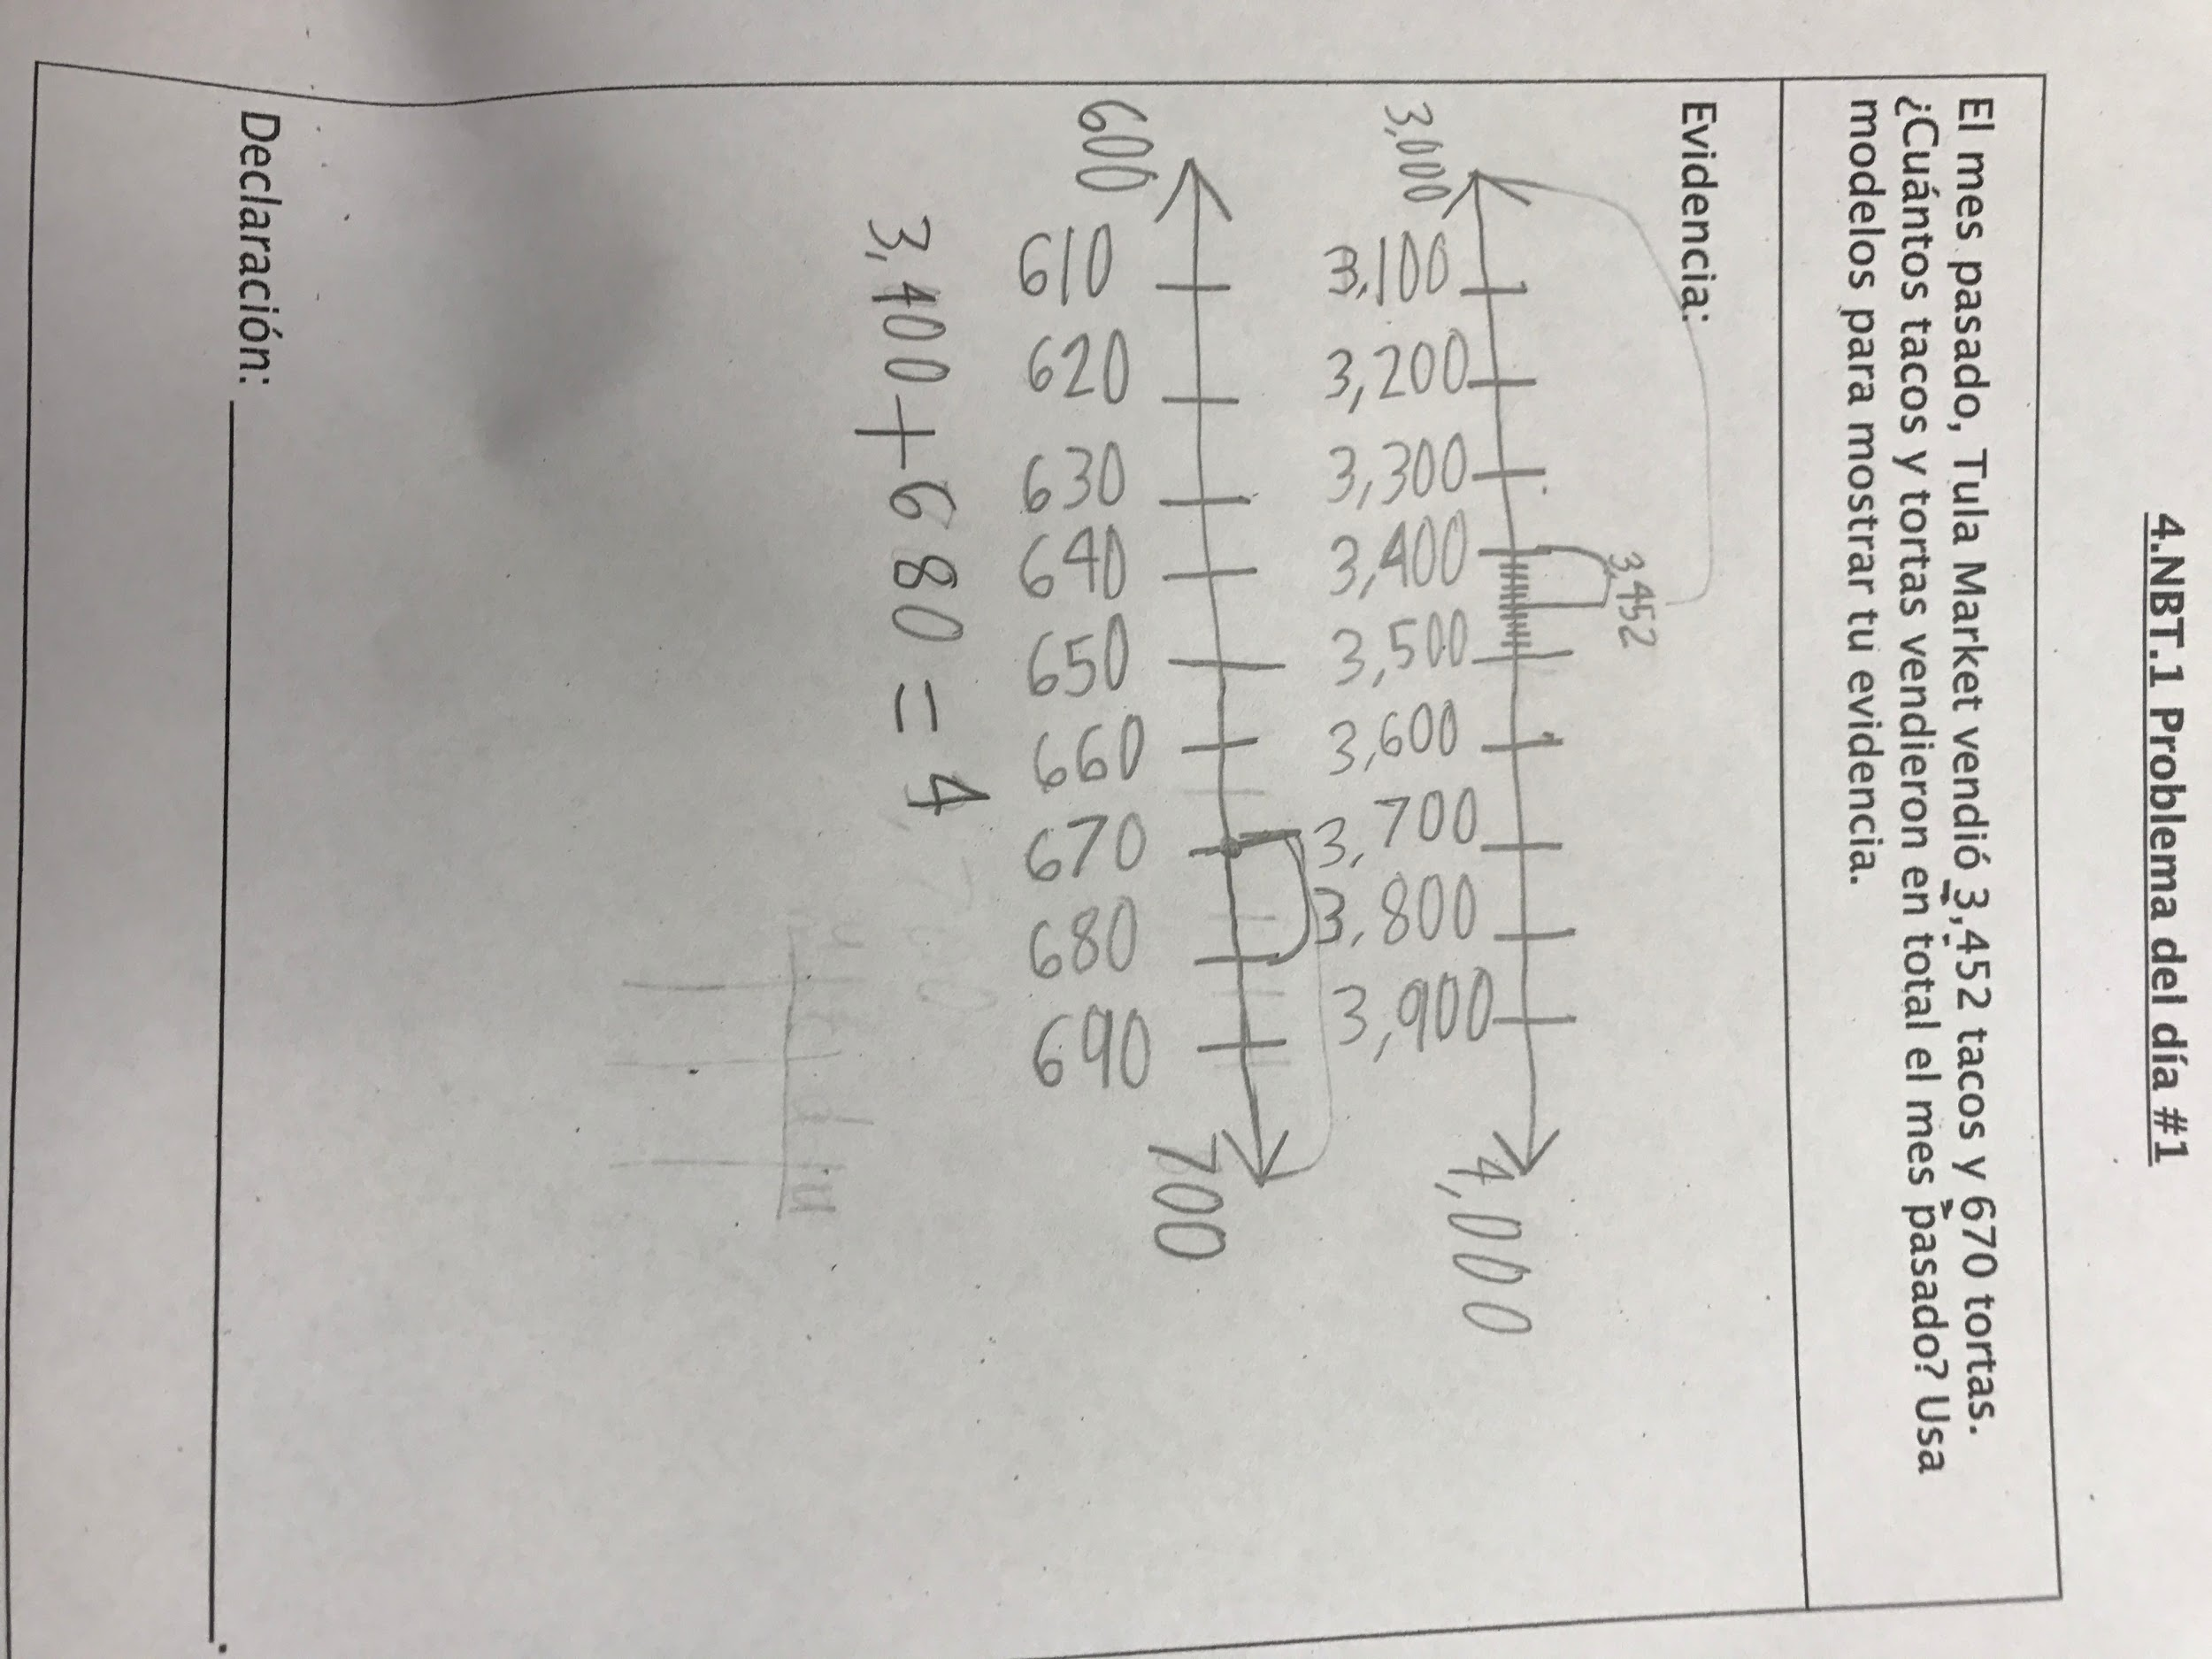 4.NBT.1 Problema del día #1
El mes pasado, Tula Market vendió 3,452 tacos y 670 tortas.
¿Cuántos tacos y tortas vendieron en total el mes pasado? Usa
modelos para mostrar tu evidencia.
Evidencia:
3,452
3,000 3,100 3,200 3,300 3,400 3,500 3,600 3,700 3,800 3,900 4,000
600 610 620 630 640 650 660 670 680 690 700
3,400 + 680 = 4
Declaración: .